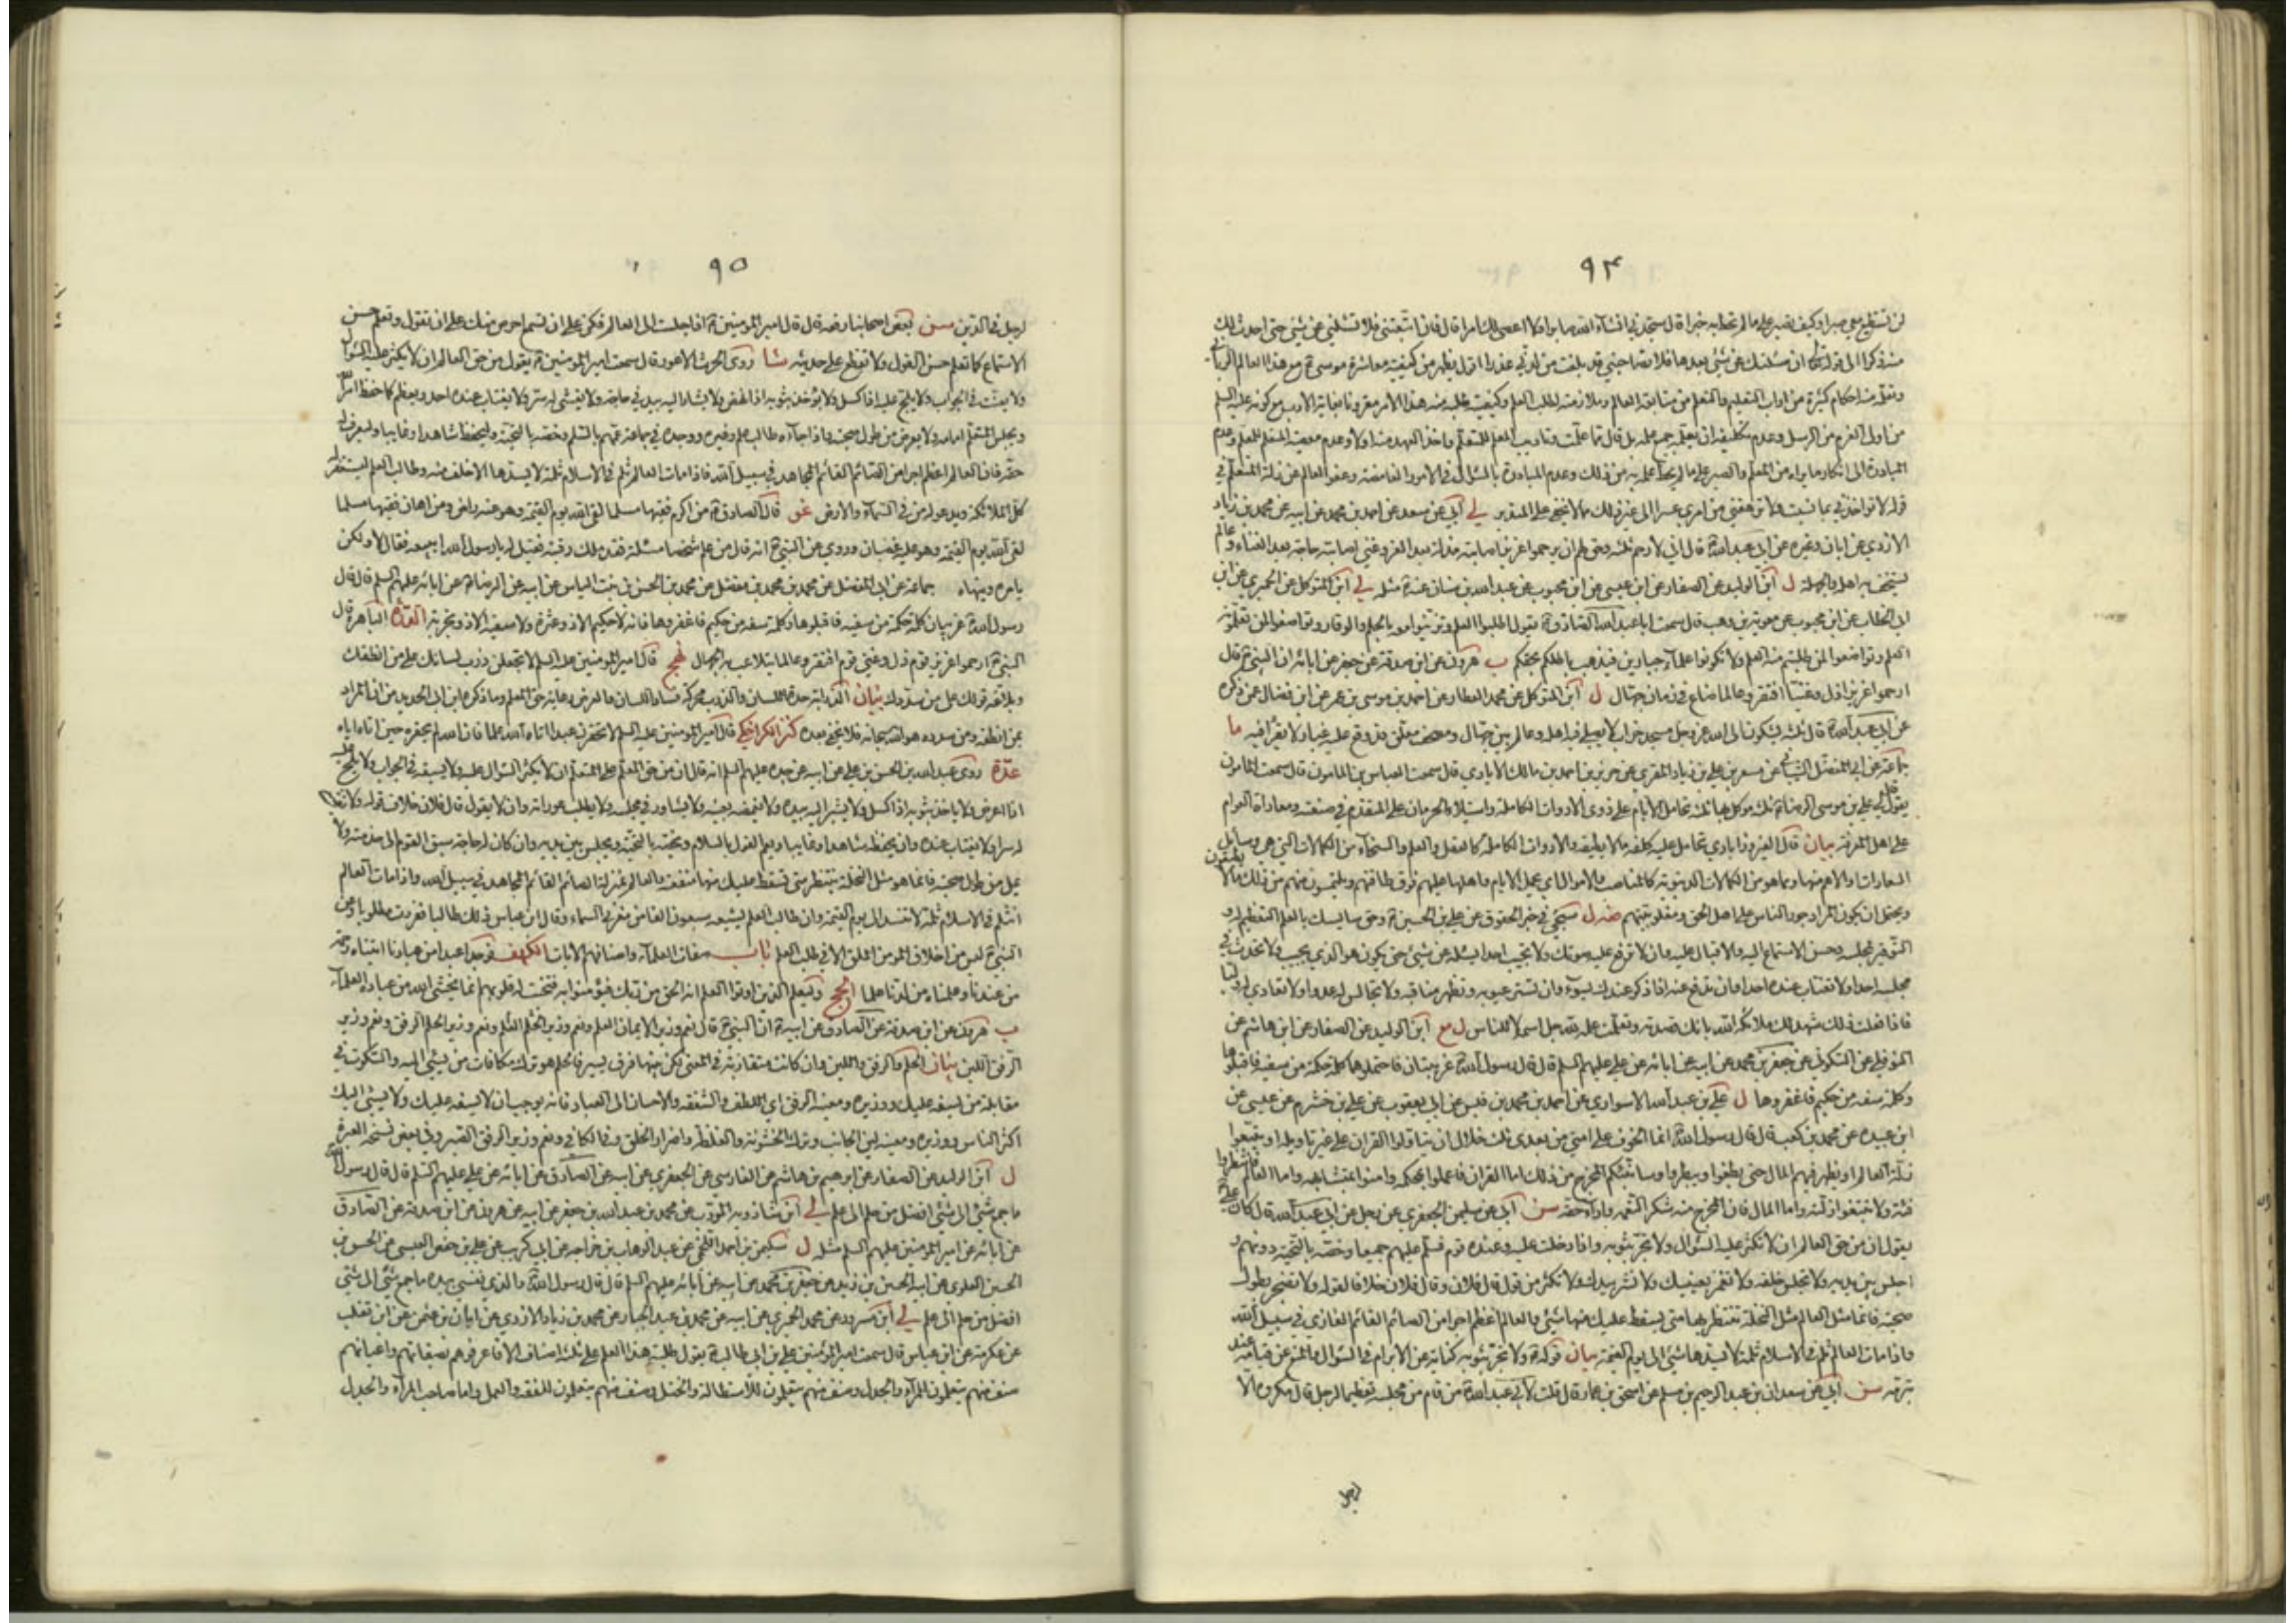 ٩٤
لن تستطيع معي صبرا وكيف تصبر على ما لم تحط به خبرا قال ستجدني انشاء الله صابرا ولا اعصي لك امرا قال فان اتبعتني فلا تسئلني عن شيء حتى احدث لك
منه ذكرا الى قوله ان سئلتك عن شيء بعدها فلا تصاحبني قد بلغت من لدني عذرا اقول يظهر من كيفية معاشرة موسى مع هذا العالم الرباني
وتعلمه منه احكام كثيرة من اداب التعليم والتعلم من متابعة العالم وملازمته لطلب العلم وكيفية طلبه منه هذا الامر مقرونا بغاية الادب مع كونه عليه السلم
من اولي العزم من الرسل وعدم تكليفه ان يعلمه جميع علمه بل قال مما علمت وتاديب المعلم للمتعلم واخذ العهد منه اولا وعدم معصية المتعلم للمعلم وعدم
المبادرة الى انكار ما يراه من المعلم والصبر على ما لم يحط علمه به من ذلك وعدم المبادرة بالسؤال في الامور الغامضة وعفو العالم عن زلة المتعلم في
قوله لا تؤاخذني بما نسيت ولا ترهقني من امري عسرا الى غير ذلك مما لا يخفى على المتدبر لي ابي عن سعد عن احمد بن محمد عن ابيه عن محمد بن زياد
الازدي عن ابان وغيره عن ابي عبد الله قال اني لارحم ثلثة وحق لهم ان يرحموا عزيز اصابته مذلة بعد العز وغني اصابته حاجة بعد الغناء وعالم
يستخف به اهله والجهلة ل ابن الوليد عن الصفار عن ابن عيسى عن ابن محبوب عن عبد الله بن سنان عنه مثله لي ابن المتوكل عن الحميري عن ابن
ابي الخطاب عن ابن محبوب عن معوية بن وهب قال سمعت ابا عبد الله الصادق يقول اطلبوا العلم وتزينوا معه بالحلم والوقار وتواضعوا لمن تعلمونه
العلم وتواضعوا لمن طلبتم منه العلم ولا تكونوا علماء جبارين فيذهب باطلكم بحقكم ب هرون عن ابن صدقة عن جعفر عن ابائه ان النبي قال
ارحموا عزيزا ذل وغنيا افتقر وعالما ضاع في زمان جهال ل ابن المتوكل عن محمد العطار عن احمد بن موسى بن عمر عن ابن فضال عمن ذكره
عن ابي عبد الله قال ثلثة يشكون الى الله عز وجل مسجد خراب لا يصلي فيه اهله وعالم بين جهال ومصحف معلق قد وقع عليه غبار لا يقرا فيه ما
جماعة عن ابي المفضل الشيباني عن مسعر بن علي بن زياد المقري عن حريز بن احمد بن مالك الايادي قال سمعت العباس بن المامون قال سمعت المامون
يقول قال لي علي بن موسى الرضا ثلثة موكل بها ثلثة تحامل الايام على ذوي الادوات الكاملة واستيلاء الحرمان على المتقدم في صنعته ومعاداة العوام
على اهل المعرفة بيان قال الفيروزابادي تحامل عليه كلفه ما لا يطيقه والادوات الكاملة كالعقل والعلم والسخاء من الكمالات التي هي وسائل
السعادات والاعم منها ومما هو من الكمالات الدنيوية كالمناصب والاموال اي يحمل الايام واهلها عليهم فوق طاقتهم ويلتمسون منهم من ذلك ما لا يطيقون
ويحتمل ان يكون المراد جور الناس على اهل الحق ومغلوبيتهم ضه ل سيجئ في خبر الحقوق عن علي بن الحسين وحق سايسك بالعلم التعظيم له و
التوقير لمجلسه وحسن الاستماع اليه والاقبال عليه وان لا ترفع عليه صوتك ولا تجيب احدا يسئله عن شيء حتى يكون هو الذي يجيب ولا تحدث في
مجلسه احدا ولا تغتاب عنده احدا وان تدفع عنه اذا ذكر عندك بسوء وان تستر عيوبه وتظهر مناقبه ولا تجالس له عدوا ولا تعادي له وليا
فاذا فعلت ذلك شهد لك ملائكة الله بانك قصدته وتعلمت علمه لله جل اسمه لا للناس ل مع ابن الوليد عن الصفار عن ابن هاشم عن
النوفلي عن السكوني عن جعفر بن محمد عن ابيه عن ابائه عن علي عليهم السلم قال قال رسول الله غريبتان فاحتملوهما كلمة حكمة من سفيه فاقبلوها
وكلمة سفه من حكيم فاغفروها ل علي بن عبد الله الاسواري عن احمد بن محمد بن قيس عن ابي يعقوب عن علي بن خشرم عن عيسى عن
ابن عبيدة عن محمد بن كعب قال قال رسول الله انما اتخوف على امتي من بعدي ثلث خلال ان يتاولوا القران على غير تاويله او يتبعوا
زلة العالم او يظهر فيهم المال حتى يطغوا ويبطروا وسانبئكم المخرج من ذلك اما القران فاعملوا بمحكمه وامنوا بمتشابهه واما العالم فانتظروا
فئته ولا تتبعوا زلته واما المال فان المخرج منه شكر النعمة واداء حقه سن ابي عن سليمن الجعفري عن رجل عن ابي عبد الله قال كان علي
يقول ان من حق العالم ان لا تكثر عليه السؤال ولا تجر بثوبه واذا دخلت عليه وعنده قوم فسلم عليهم جميعا وخصه بالتحية دونهم و
اجلس بين يديه ولا تجلس خلفه ولا تغمز بعينيك ولا تشر بيدك ولا تكثر من قول قال فلان وقال فلان خلافا لقوله ولا تضجر بطول
صحبته فانما مثل العالم مثل النخلة تنتظر بها متى يسقط عليك منها شيء والعالم اعظم اجرا من الصائم القائم الغازي في سبيل الله
واذا مات العالم ثلم في الاسلام ثلمة لا يسدها شيء الى يوم القيمة بيان قوله ولا تجر بثوبه كناية عن الابرام في السؤال والمنع عن قيامه عند
تبرمه سن ابي عن سعدان عن عبد الرحيم بن مسلم عن اسحق بن عمار قال قلت لابي عبد الله من قام من مجلسه تعظيما لرجل قال مكروه الا
لرجل
٩٥
لرجل في الدين سن بعض اصحابنا رفعه قال قال امير المؤمنين اذا جلست الى العالم فكن على ان تسمع احرص منك على ان تقول وتعلم حسن
الاستماع كما تعلم حسن القول ولا تقطع على حديثه شا روى الحرث الاعور قال سمعت امير المؤمنين يقول من حق العالم ان لا يكثر عليه السؤال
ولا يعنت في الجواب ولا يلح عليه اذا كسل ولا يؤخذ بثوبه اذا نهض ولا يشار اليه بيد في حاجة ولا يفشى له سر ولا يغتاب عنده احد ويعظم كما حفظ امر الله
ويجلس المتعلم امامه ولا يعرض من طول صحبته واذا جاءه طالب علم وغيره ووجده في جماعة عمهم بالسلم وخصه بالتحية وليحفظ شاهدا وغايبا وليعرف له
حقه فان العالم اعظم اجرا من الصائم القائم المجاهد في سبيل الله فاذا مات العالم ثلم في الاسلام ثلمة لا يسدها الا خلف منه وطالب العلم ليستغفر له
كل الملائكة ويدعو له من في السماء والارض غو قال الصادق من اكرم فقيها مسلما لقى الله يوم القيمة وهو عنه راض ومن اهان فقيها مسلما
لقى الله يوم القيمة وهو عليه غضبان وروي عن النبي انه قال من علم شخصا مسئلة فقد ملك رقبته فقيل له يا رسول الله ايبيعه فقال لا ولكن
يامره وينهاه جماعة عن ابي المفضل عن محمد بن محمد بن معقل عن محمد بن الحسن بن بنت الياس عن ابيه عن الرضا عن ابائه عليهم السلم قال قال
رسول الله غريبان كلمة حكمة من سفيه فاقبلوها وكلمة سفه من حكيم فاغفروها فانه لا حكيم الا ذو عثرة ولا سفيه الا ذو تجربة الدرة الباهرة قال
النبي ارحموا عزيز قوم ذل وغني قوم افتقر وعالما يتلاعب به الجهال نهج قال امير المؤمنين عليه السلم لا تجعلن ذرب لسانك على من انطقك
وبلاغة قولك على من سددك بيان الذرابة حدة اللسان والذرب محركة فساد اللسان والغرض رعاية حق المعلم وما ذكره ابن ابي الحديد من ان المراد
بمن انطقه ومن سدده هو الله سبحانه فلا يخفى بعده كنز الكراجكي قال امير المؤمنين عليه السلم لا تحقرن عبدا اتاه الله علما فان الله لم يحقره حين اتاه اياه
عدة روى عبد الله بن الحسن بن علي عن ابيه عن جده عليهم السلم انه قال ان من حق المعلم على المتعلم ان لا يكثر السؤال عليه ولا يسبقه في الجواب ولا يلح عليه
اذا اعرض ولا ياخذ بثوبه اذا كسل ولا يشير اليه بيده ولا يغمزه بعينه ولا يشاور في مجلسه ولا يطلب عوراته وان لا يقول قال فلان خلاف قوله ولا يفشي
له سرا ولا يغتاب عنده وان يحفظه شاهدا وغايبا ويعم القوم بالسلام ويخصه بالتحية ويجلس بين يديه وان كان له حاجة سبق القوم الى خدمته ولا
يمل من طول صحبته فانما هو مثل النخلة ينتظر متى تسقط عليك منها منفعة والعالم بمنزلة الصائم القائم المجاهد في سبيل الله واذا مات العالم
انثلم في الاسلام ثلمة لا تنسد الى يوم القيمة وان طالب العلم يشيعه سبعون الفا من مقربي السماء وقال ابن عباس ذللت طالبا فعززت مطلوبا وعن
النبي ليس من اخلاق المؤمن الملق الا في طلب العلم باب صفات العلماء واصنافهم الايات الكهف فوجدا عبدا من عبادنا اتيناه رحمة
من عندنا وعلمناه من لدنا علما الحج وليعلم الذين اوتوا العلم انه الحق من ربك فيؤمنوا به فتخبت له قلوبهم انما يخشى الله من عباده العلماء
ب هرون عن ابن صدقة عن الصادق عن ابيه ان النبي قال نعم وزير الايمان العلم ونعم وزير العلم الحلم ونعم وزير الحلم الرفق ونعم وزير
الرفق اللين بيان الحلم والرفق واللين وان كانت متقاربة في المعنى لكن بينها فرق يسير فالحلم هو ترك مكافات من يسيئ اليه والسكوت في
مقابلة من يسفه عليك ووزيره ومعينه الرفق اي اللطف والشفقة والاحسان الى العباد فانه يوجب ان لا يسفه عليك ولا يسيئ اليك
اكثر الناس ووزيره ومعينه لين الجانب وترك الخشونة والغلظة واضرار الخلق وفي الكافي ونعم وزير الرفق الصبر وفي بعض نسخه العبرة
ل ابن الوليد عن الصفار عن ابرهيم بن هاشم عن الفارسي عن الجعفري عن ابيه عن الصادق عن ابائه عن علي عليهم السلم قال قال رسول الله
ما جمع شيء الى شيء افضل من حلم الى علم لي ابن شاذويه المؤدب عن محمد بن عبد الله بن جعفر عن ابيه عن هرون عن ابن صدقة عن الصادق
عن ابائه عن امير المؤمنين عليهم السلم مثله ل سليمن بن احمد اللخمي عن عبد الوهاب بن خراجة عن ابي كريب عن علي بن حفص العبسي عن الحسن بن
الحسين العلوي عن ابيه الحسين بن زيد عن جعفر بن محمد عن ابيه عن ابائه عليهم السلم قال قال رسول الله والذي نفسي بيده ما جمع شيء الى شيء
افضل من حلم الى علم لي ابن مسرور عن محمد الحميري عن ابيه عن محمد بن عبد الجبار عن محمد بن زياد الازدي عن ابان بن عثمن عن ابن تغلب
عن عكرمة عن ابن عباس قال سمعت امير المؤمنين علي بن ابي طالب يقول طلبة هذا العلم على ثلثة اصناف الا فاعرفوهم بصفاتهم واعيانهم
صنف منهم يتعلمون للمراء والجدل وصنف منهم يتعلمون للاستطالة والختل وصنف منهم يتعلمون للفقه والعمل فاما صاحب المراء والجدل